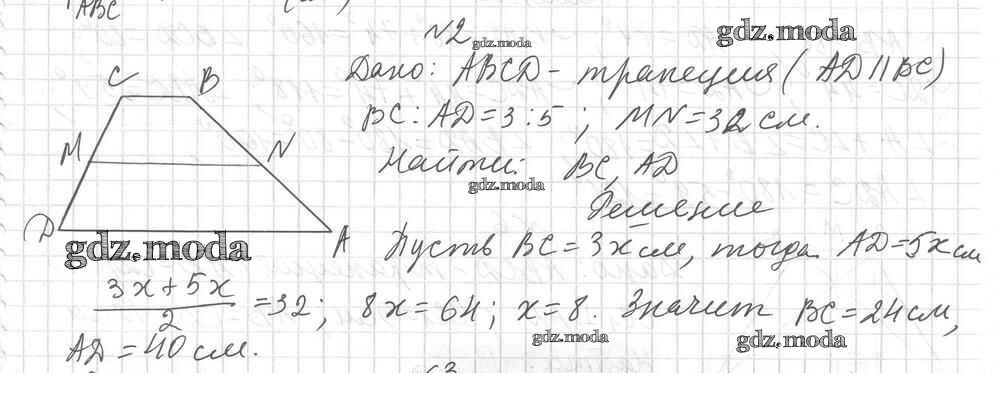 ABC
N2
gdz.moda
gdz.moda
C B
Дано: ABCD - трапеция (AD || BC)
BC : AD = 3 : 5 ; MN = 32 см.
M N
Найти: BC, AD
gdz.moda
Решение
D A
gdz.moda
Пусть BC = 3x см, тогда AD = 5x см
3x + 5x
2
= 32; 8x = 64; x = 8. Значит BC = 24 см,
gdz.moda
gdz.moda
AD = 40 см.